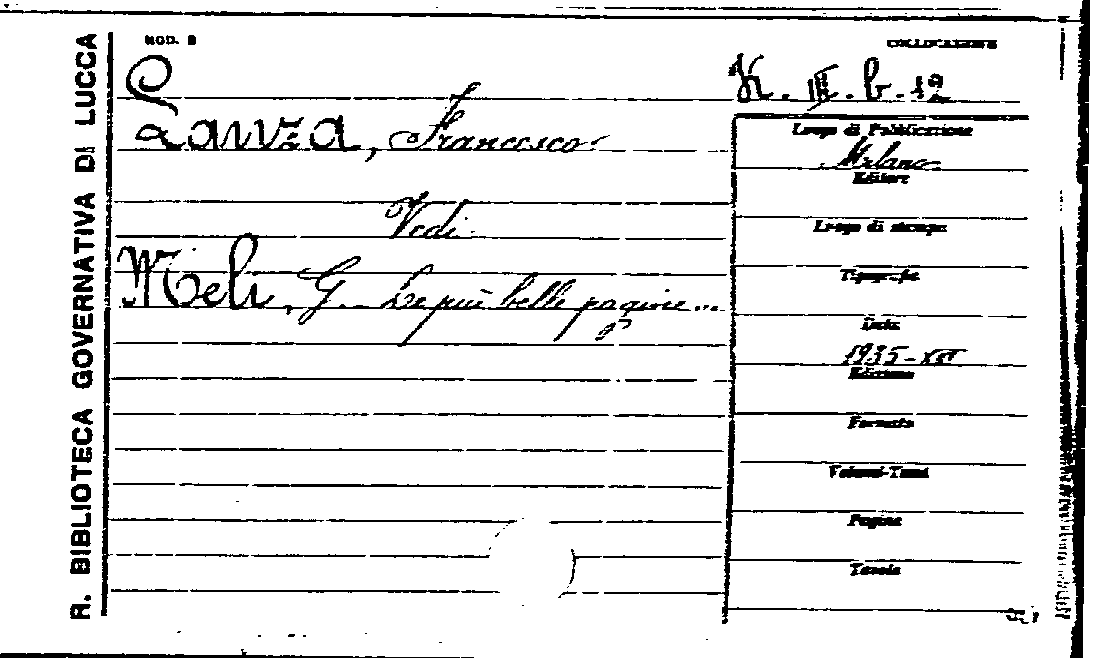 R. BIBLIOTECA GOVERNATIVA DI LUCCA
MOD. B
COLLOCAZIONE
K. III. b. 12
Lanza, Francesco
Vedi
Meli, G. Le più belle pagine...
Luogo di Pubblicazione
Milano
Editore
Luogo di stampa
Tipografia
Data
1935-XIII
Edizione
Formato
Volumi-Tomi
Pagine
Tavole